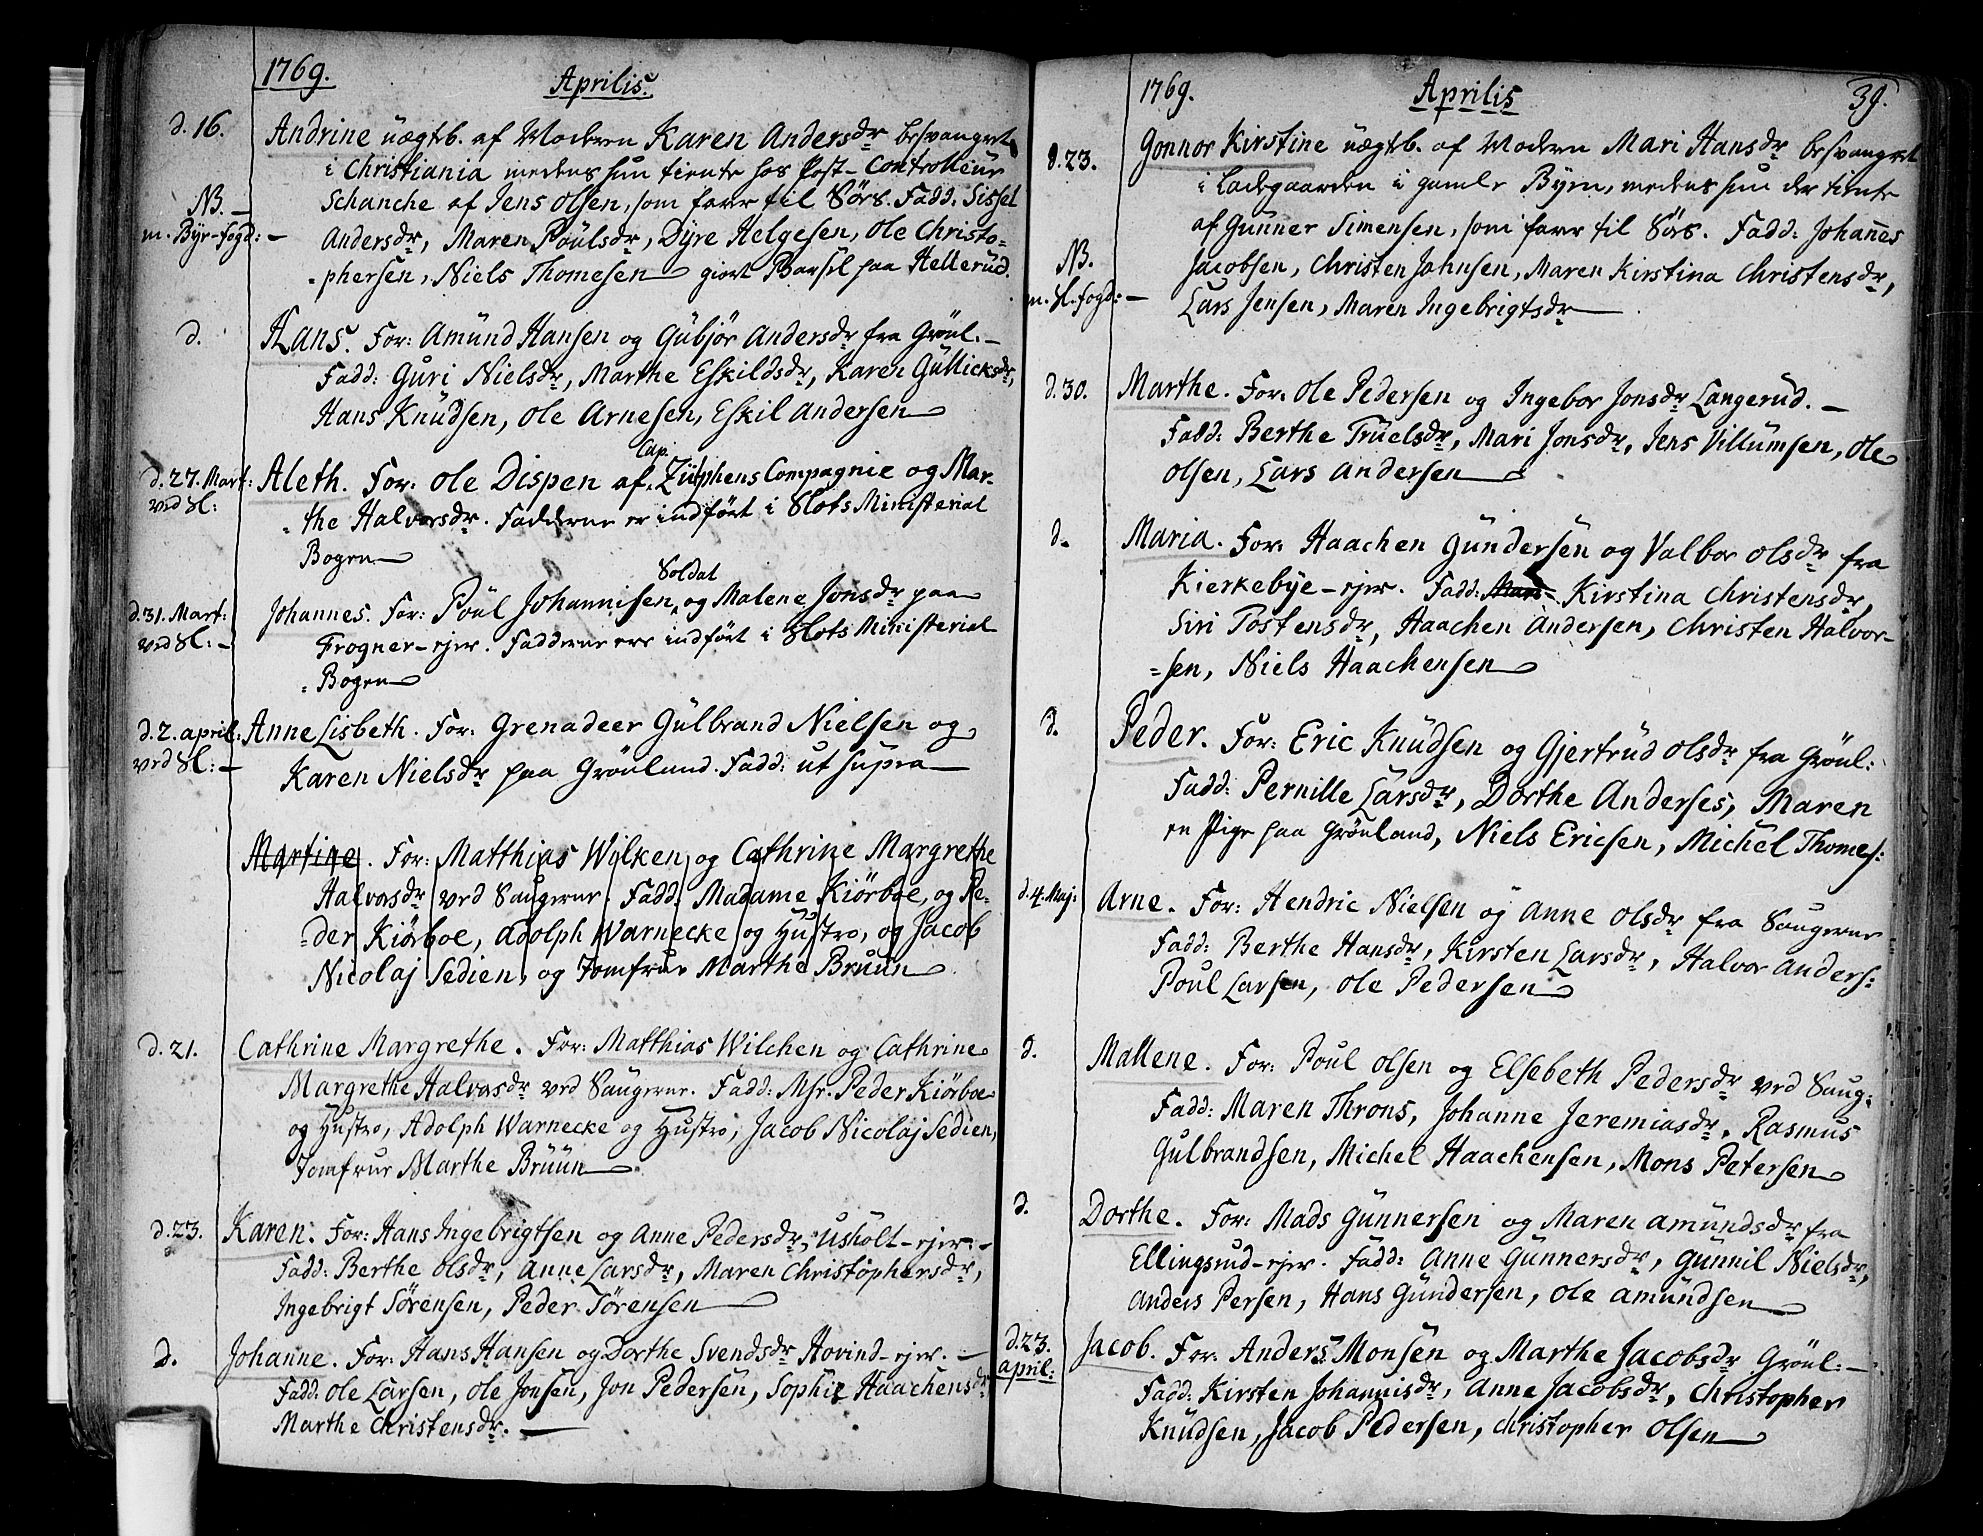 1769. Aprilis.
d. 16. Andrine uægtb. af Moderen Karen Andersdr besvangret
i Christiania medens hun tiente hos Post-Controlleur
NB. Schanche af Jens Olsen, som farer til Søes. Fadd: Sissel
m. Bÿe-Fogd: Andersdr, Maren Poulsdr, Dyre Helgesen, Ole Christo=
=phersen, Niels Thomesen giort Barsel paa Hellerud.
d. Hans. For: Amund Hansen og Gubjør Andersdr fra Grönl.
Fadd: Guri Nielsdr, Marthe Eskildsdr, Karen Gullicksdr,
Hans Knudsen, Ole Arnesen, Eskil Andersen
d. 27. Mart: Aleth. For: Ole Dispen af Cap. Zütphens Compagnie og Mar=
ved Sl: =the Halvorsdr. Fadderne er indført i Slots Ministerial
Bogen
d. 31. Mart: Johannes. For: Poul Johannisen Soldat og Malene Jonsdr paa
ved Sl: Frogner-ejer. Fadderne ere indført i Slots Ministerial
Bogen
d. 2. april: Anne Lisbeth. For: Grenadeer Gulbrand Nielsen og
ved Sl: Karen Nielsdr paa Grönland. Fadd: ut supra
Martine. For: Matthias Wilken og Cathrine Margrethe
Halvorsdr ved Saugerne. Fadd: Madame Kiörboe, og Pe=
=der Kiörboe, Adolph Warnecke og Hustro, og Jacob
Nicolaj Sedien, og Jomfrue Marthe Bruun
d. 21. Cathrine Margrethe. For: Matthias Wilchen og Cathrine
Margrethe Halvorsdr ved Saugerne. Fadd: Msr. Peder Kiörboe
og Hustro, Adolph Warnecke og Hustro, Jacob Nicolaj Sedien,
Jomfrue Marthe Bruun
d. 23. Karen. For: Hans Ingebrigtsen og Anne Pedersdr, Usholt-ejer.
Fadd: Berthe Olsdr, Anne Larsdr, Maren Christophersdr,
Ingebrigt Sörensen, Peder Sörensen
d. Johanne. For: Hans Hansen og Dorthe Svendsdr Hovind-ejer.
Fadd: Ole Larsen, Ole Jonsen, Jon Pedersen, Sophie Haachensdr
Marthe Christensdr.
1769. Aprilis 39.
d. 23. Gonnor Kirstine uægtb. af Moderen Mari Hansdr besvangret
i Ladegaarden i gamle Byen, medens hun der tiente
af Gunner Simensen, som farer til Søes. Fadd: Johannes
NB. Jacobsen, Christen Johnsen, Maren Kirstina Christensdr,
m. Sl. Fogd: Lars Jensen, Maren Ingebrigtsdr
d. 30. Marthe. For: Ole Pedersen og Ingebor Jonsdr Langerud.
Fadd: Berthe Truelsdr, Mari Jonsdr, Jens Villumsen, Ole
Olsen, Lars Andersen
d. Maria. For: Haachen Gundersen og Valbor Olsdr fra
Kierkebye-ejer. Fadd: Kirstina Christensdr,
Siri Postensdr, Haachen Andersen, Christen Halvor=
=sen, Niels Haachensen
d. Peder. For: Eric Knudsen og Gjertrud Olsdr fra Grönl:
Fadd: Pernille Larsdr, Dorthe Anderses, Maren
en Pige paa Grönland, Niels Ericsen, Michel Thomes:
d. 4. Maj: Arne. For: Hendric Nielsen og Anne Olsdr fra Saugerne
Fadd: Berthe Hansdr, Kirsten Larsdr, Halvor Anders:
Poul Larsen, Ole Pedersen
d. Mallene. For: Poul Olsen og Elsebeth Pedersdr ved Saug:
Fadd: Maren Throns, Johanne Jeremiasdr, Rasmus
Gulbrandsen, Michel Haachensen, Mons Petersen
d. Dorthe. For: Mads Gunnersen og Maren Amundsdr fra
Ellingsrud-ejer. Fadd: Anne Gunnersdr, Gunnil Nielsdr,
Anders Persen, Hans Gundersen, Ole Amundsen
d. 23. april: Jacob. For: Anders Monsen og Marthe Jacobsdr Grönl:
Fadd: Kirsten Johannisdr, Anne Jacobsdr, Christopher
Knudsen, Jacob Pedersen, Christopher Olsen